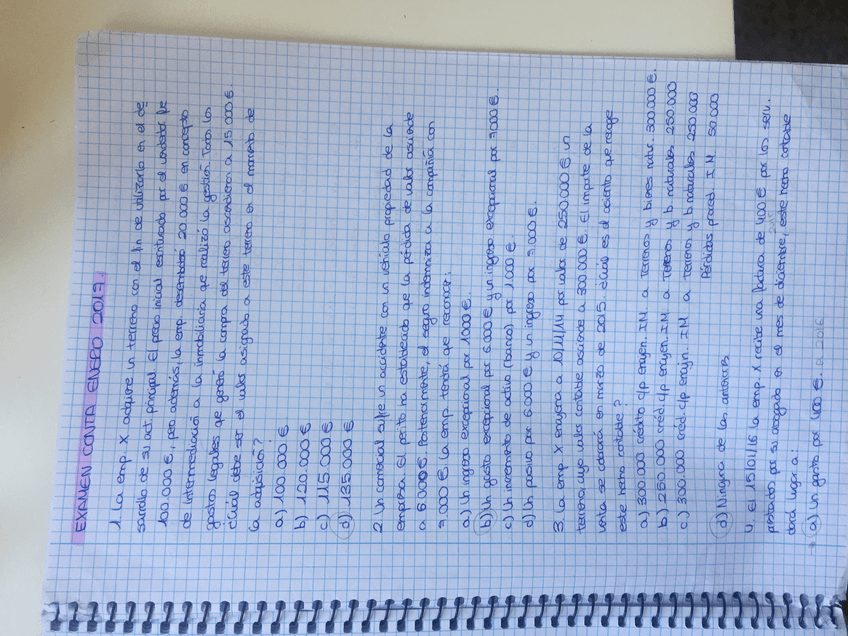 EXAMEN CONTA ENERO 2017.
1. La emp. X adquiere un terreno con el fin de utilizarlo en el de
sarrollo de su act. principal. El precio inicial estimado por el vendedor fue
100.000 €, pero además, la emp. desembolsó 20.000 € en concepto
de intermediación a la inmobiliaria que realizó la gestión. Todos los
gastos legales que generó la compra del terreno ascendieron a 15.000 €
¿Cuál debe ser el valor asignado a este terreno en el momento de
la adquisición?
a) 100.000 €
b) 120.000 €
c) 115.000 €
d) 135.000 €
2. Un comercial sufre un accidente con un vehículo propiedad de la
empresa. El perito ha establecido que la pérdida de valor asciende
a 6.000 €. Posteriormente, el seguro indemniza a la compañía con
7.000 €. La emp. tendrá que reconocer:
a) Un ingreso excepcional por 1000 €.
b) Un gasto excepcional por 6.000 € y un ingreso excepcional por 7.000 €.
c) Un incremento de activo (banco) por 1.000 €.
d) Un pasivo por 6.000 € y un ingreso por 7.000 €.
3. La emp. X enajena a 10/11/14 por valor de 250.000 € un
terreno, cuyo valor contable asciende a 300.000 €. El importe de la
venta se cobrará en marzo de 2015. ¿Cuál es el asiento que recoge
este hecho contable?
a) 300.000 crédito c/p enajen. I.M a Terrenos y bienes natur. 300.000 €.
b) 250.000 créd. c/p enajen. I.M a Terrenos y b. naturales 250.000
c) 300.000 créd. c/p enajn. I.M a Terrenos y b naturales 250.000
Pérdidas proced. I.M. 50.000
d) Ninguna de las anteriores
4. El 15/01/16 la emp. X recibe una factura de 400 € por los serv.
prestados por su abogado en el mes de diciembre, este hecho contable
2015
dará lugar a:
a) Un gasto por 400 €. a 2016